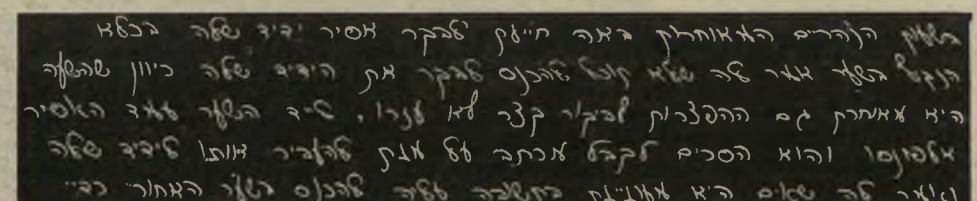 בשעות הצהריים המאוחרות באה חיילת לבקר אסיר ידיד שלה בכלא
בשער אמר לה שלא תוכל להכנס לבקר את הידיד שלה כיוון שהשעה
היא מאוחרת גם ההפצרות לביקור קצר לא עזרו. ליד השער עמד האסיר
אלפונסו והוא הסכים לקבל מכתב על מנת להעביר אותו לידיד שלה
ואמר לה שאים היא מעוניינת בתשובה עליה להכנס בשער האחורי כדי